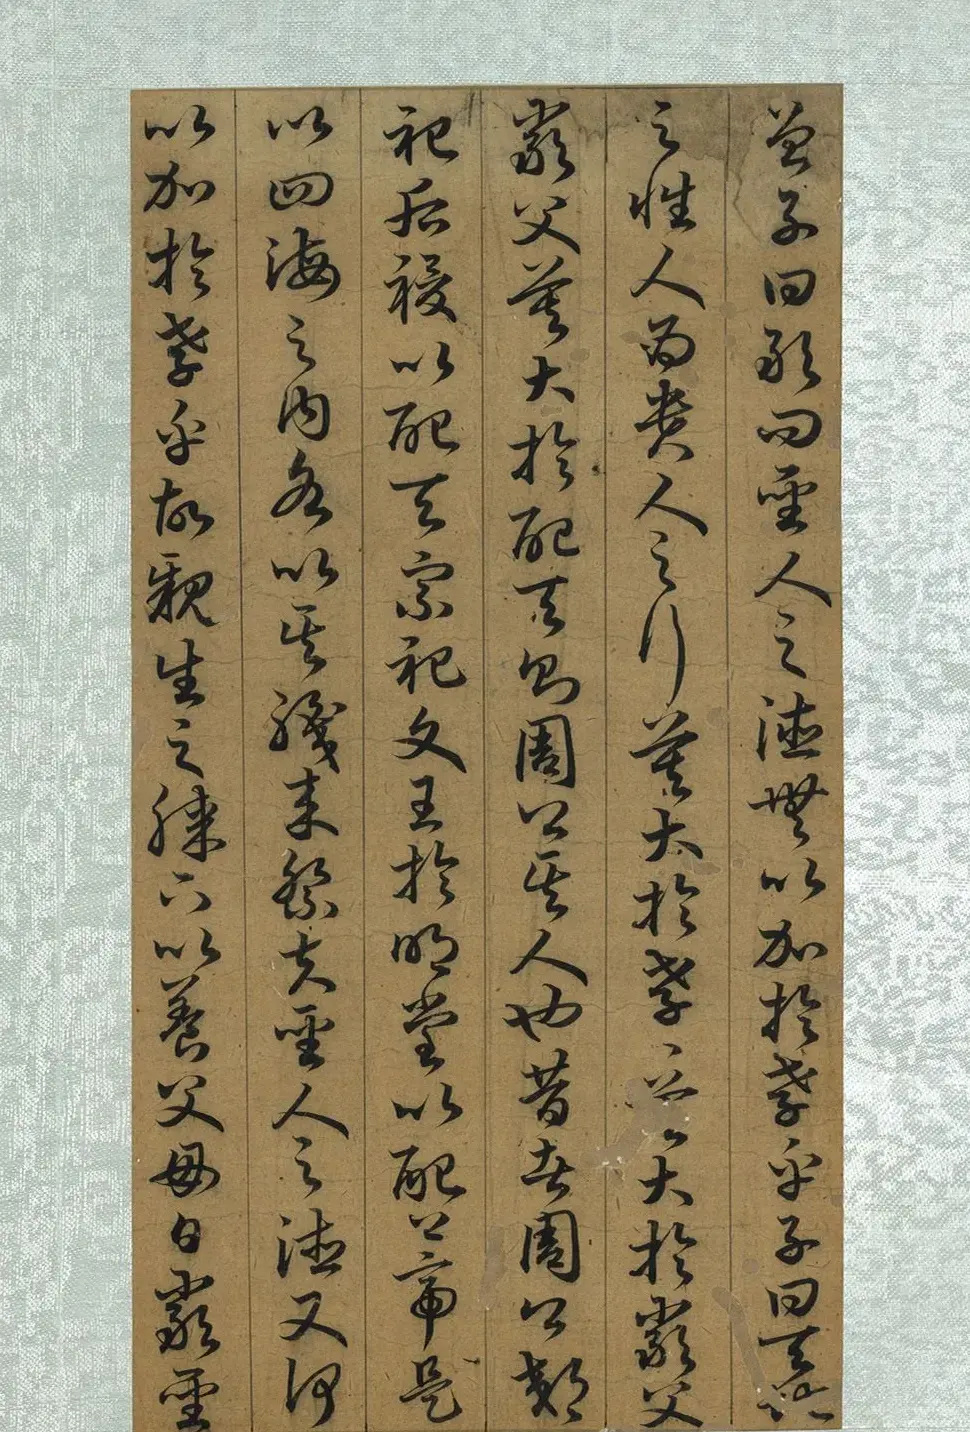 曾子曰敢問聖人之德無以加於孝乎子曰天地
之性人為貴人之行莫大於孝〻莫大於嚴父
嚴父莫大於配天則周公其人也昔者周公郊
祀后稷以配天宗祀文王於明堂以配上帝是
以四海之內各以其職來祭夫聖人之德又何
以加於孝乎故親生之膝下以養父母日嚴聖